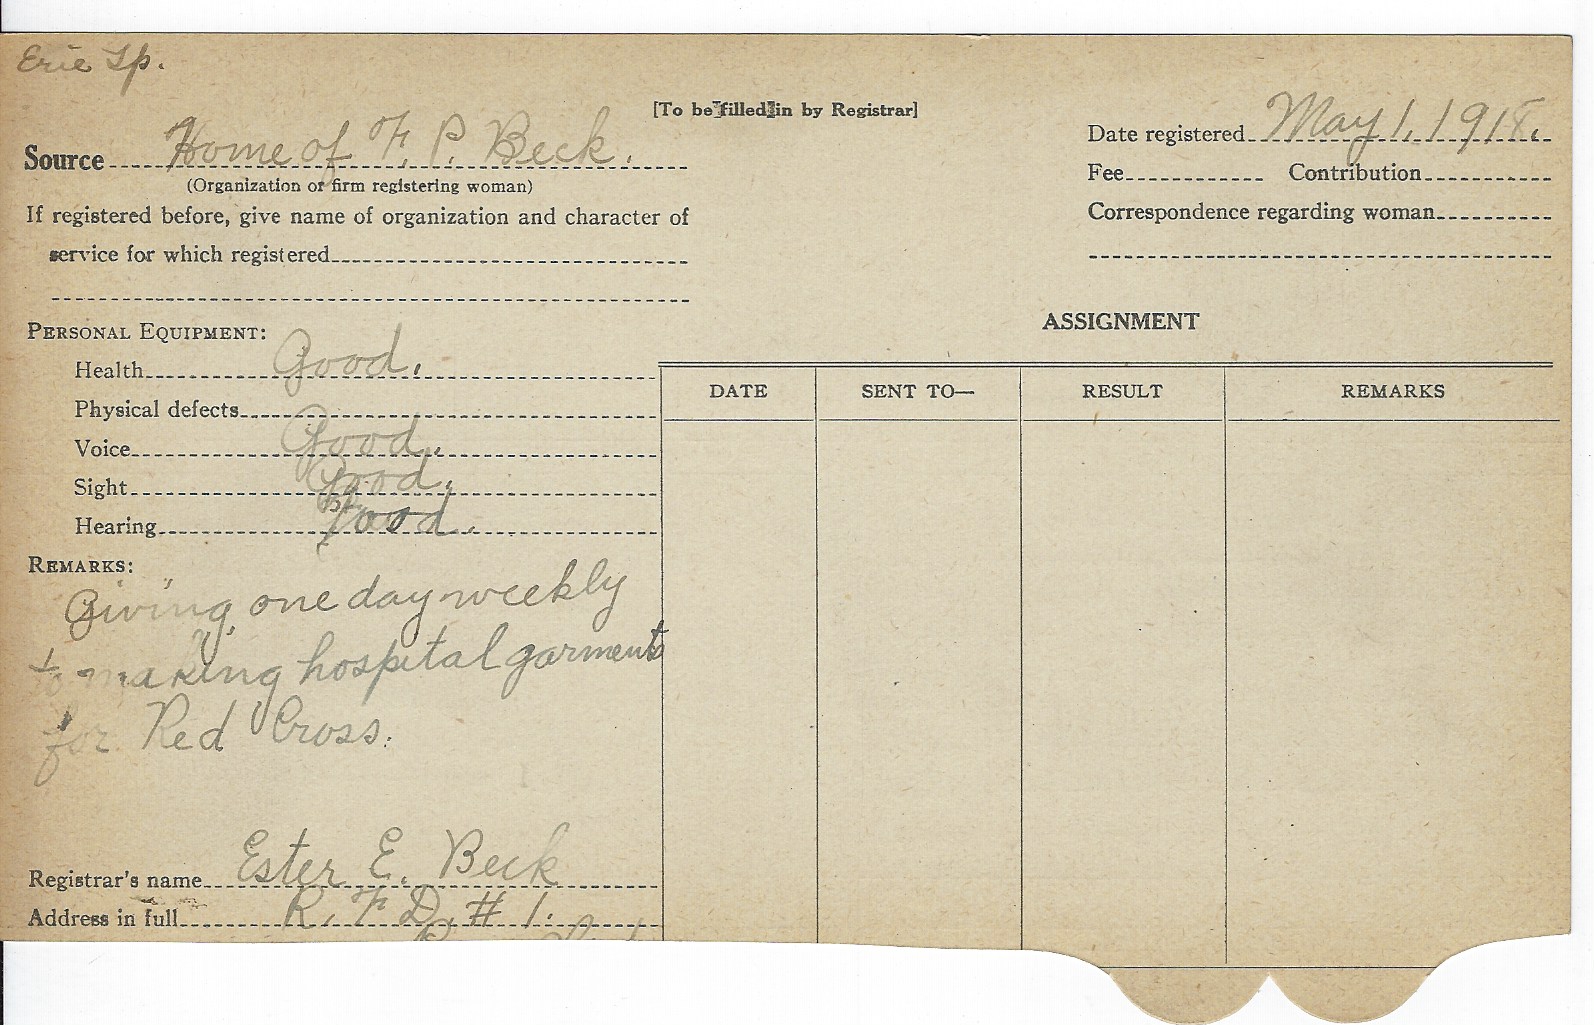 Erie Tp.
[To be filled in by Registrar]
Source Home of F. P. Beck.
(Organization or firm registering woman)
If registered before, give name of organization and character of
service for which registered
Date registered May 1, 1918.
Fee Contribution
Correspondence regarding woman
PERSONAL EQUIPMENT:
Health Good.
Physical defects
Voice Good.
Sight Good.
Hearing Good.
REMARKS:
Giving one day weekly
to making hospital garments
for Red Cross.
Registrar's name Ester E. Beck
Address in full R. F. D. # 1.
ASSIGNMENT
DATE SENT TO— RESULT REMARKS